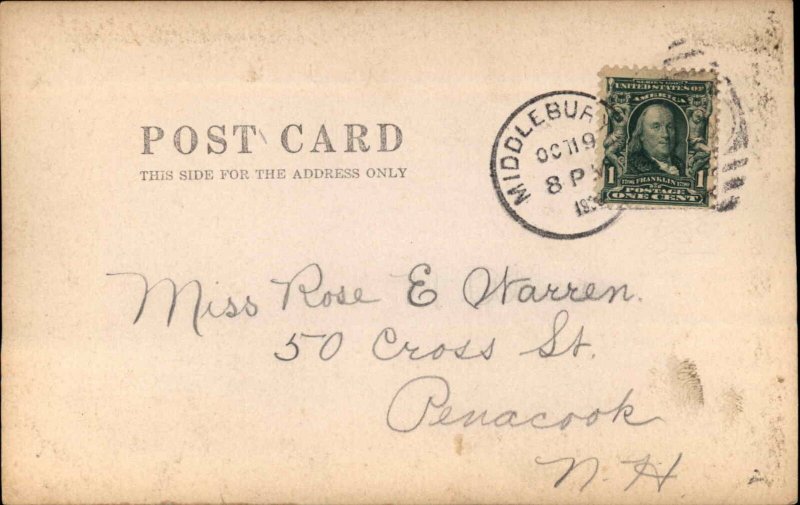 POST CARD
THIS SIDE FOR THE ADDRESS ONLY
MIDDLEBUR
OCT 19
8 P
SERIES 1902
UNITED STATES OF
AMERICA
1706 FRANKLIN 1790
1 POSTAGE 1
ONE CENT
Miss Rose E Warren.
50 Cross St.
Penacook
N. H